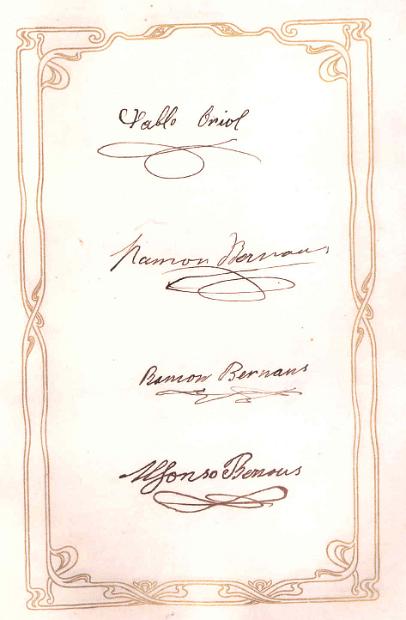 Pablo Oriol
Ramon Bernaus
Ramon Bernaus
Alfonso Bernaus